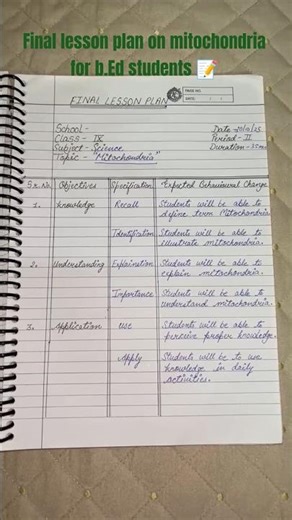 Final lesson plan on mitochondria
for b.Ed students 📝
PAGE NO.
DATE
FINAL LESSON PLAN
School -
Class - IX
Period - II
Subject - Science
Duration -
Topic - "Mitochondria"
Sr. No. Objectives Specification Expected Behavioural Change
1. Knowledge Recall Students will be able to
define term Mitochondria.
Identification Students will be able to
illustrate mitochondria.
2. Understanding Explaination Students will be able to
explain mitochondria.
Importance Students will be able to
understand mitochondria.
3. Application Use Students will be able to
percieve proper knowledge.
Apply Students will be to use
knowledge in daily
activities.